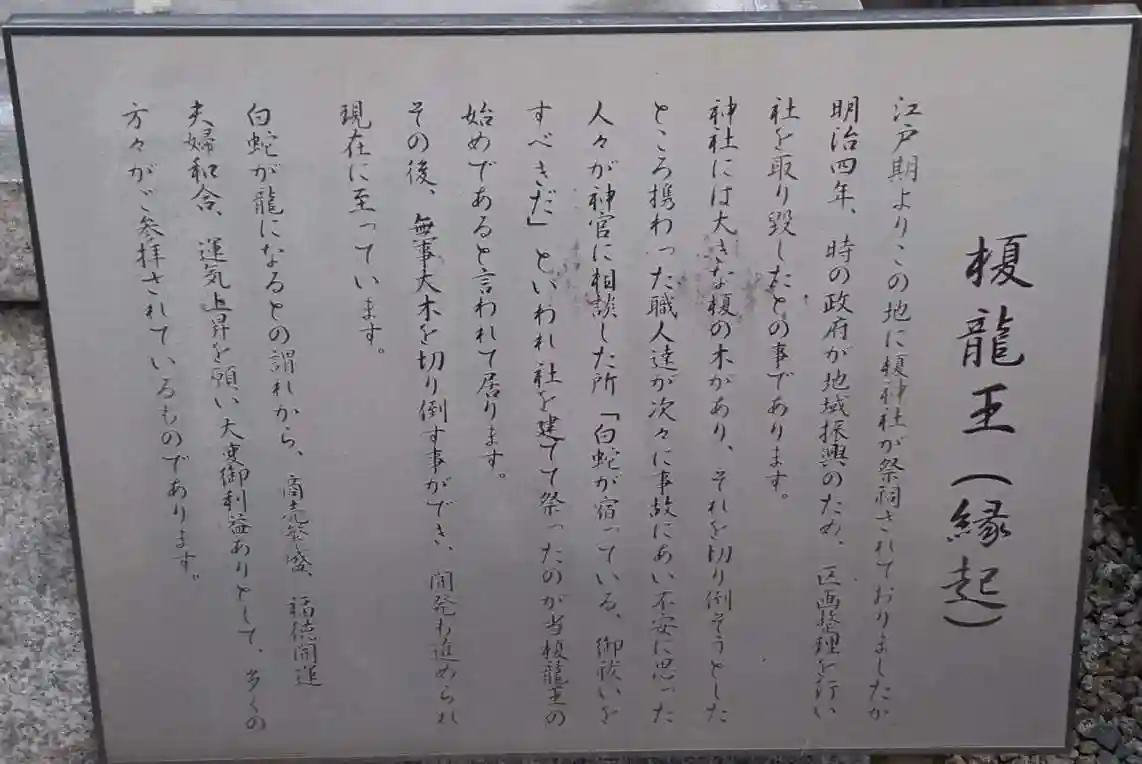 榎龍王(縁起)
江戸期よりこの地に榎神社が祭祠されておりましたが
明治四年、時の政府が地域振興のため、区画整理を行い
社を取り毀したとの事であります。
神社には大きな榎の木があり、それを切り倒そうとした
ところ携わった職人達が次々に事故にあい不安に思った
人々が神官に相談した所「白蛇が宿っている、御祓いを
すべきだ」といわれ社を建てて祭ったのが当榎龍王の
始めであると言われて居ります。
その後、無事大木を切り倒す事ができ、開発も進められ
現在に至っています。
白蛇が龍になるとの謂れから、商売発盛、福徳開運
夫婦和合、運気上昇を願い大変御利益ありとして、多くの
方々がご参拝されているものであります。